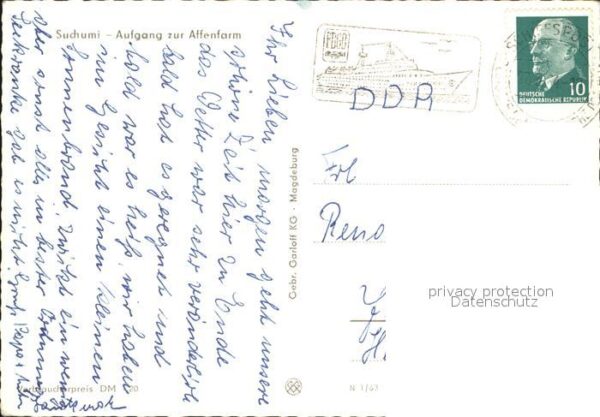 Suchumi – Aufgang zur Affenfarm
Ihr Lieben, morgen geht unsere
schöne Zeit hier zu Ende
das Wetter war sehr veränderlich
bald hat es geregnet und
bald war es heiß, wir haben
im Gesicht einen kleinen
Sonnenbrand. Zwickt ein wenig
aber sonst alles in bester Ordnung
Seekranke gab es nicht.
Verbraucherpreis DM
20
Gebr. Garloff KG · Magdeburg
N 1/63
FDGB
DDR
DEUTSCHE
DEMOKRATISCHE REPUBLIK
10
Frl
Reno
privacy protection
Datenschutz